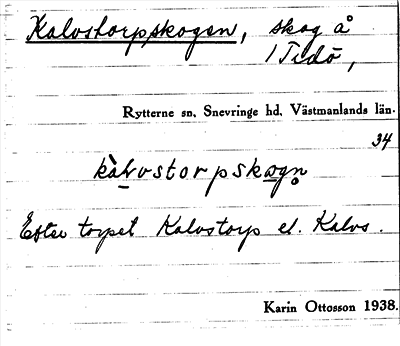 Kalvstorpskogen, skog å
1 Tidö,
Rytterne sn. Snevringe hd. Västmanlands län.
34
kàlvstorpskogn̥
Efter torpet Kalvstorp el. Kalvs.
Karin Ottosson 1938.